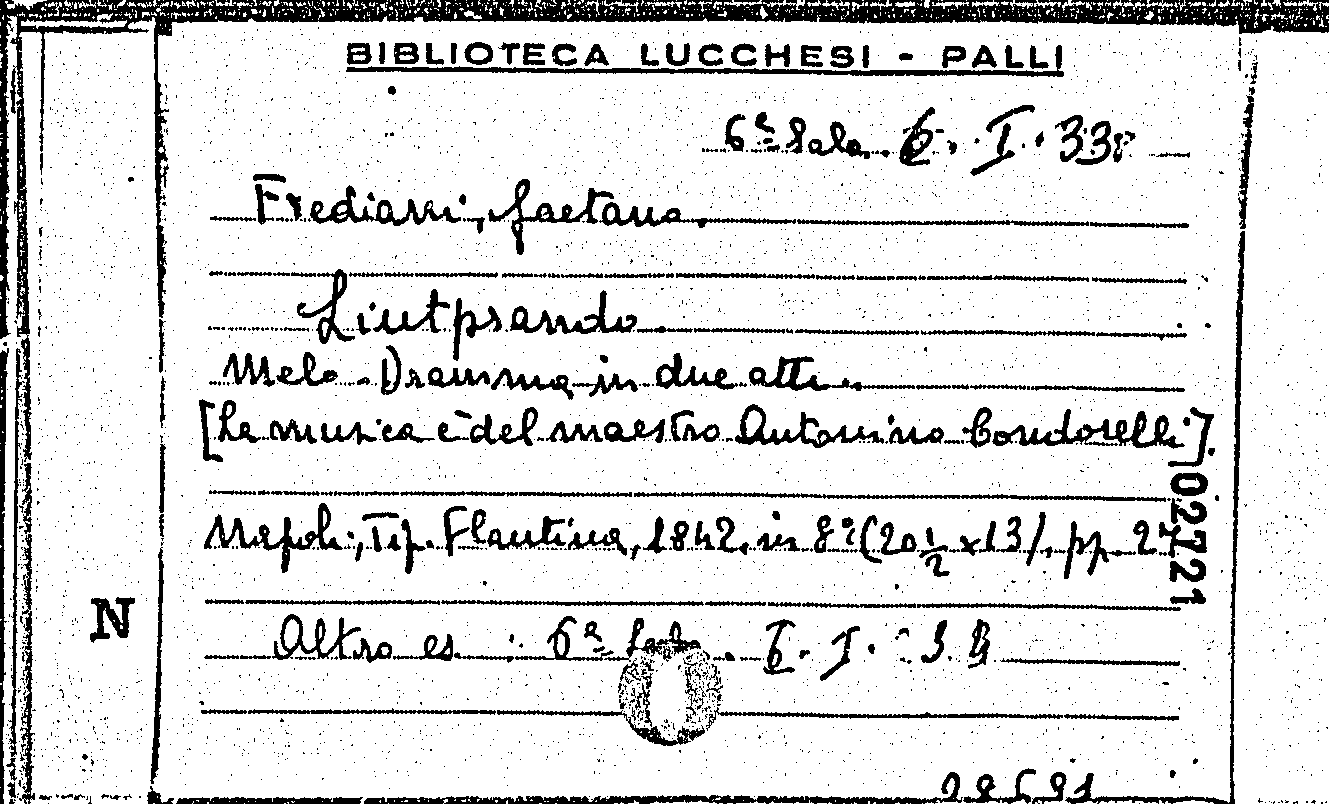 BIBLIOTECA LUCCHESI - PALLI
6ª Sala. 6. I. 33
Frediani, Gaetano.
Liutprando.
Melo-Dramma in due atti.
[La musica è del maestro Antonino Condorelli]
Napoli, Tip. Flautina, 1842, in 8º (20 1/2 x 13), pp. 27
02721
N
Altro es. : 6ª Sala. 6. I. 34
28681